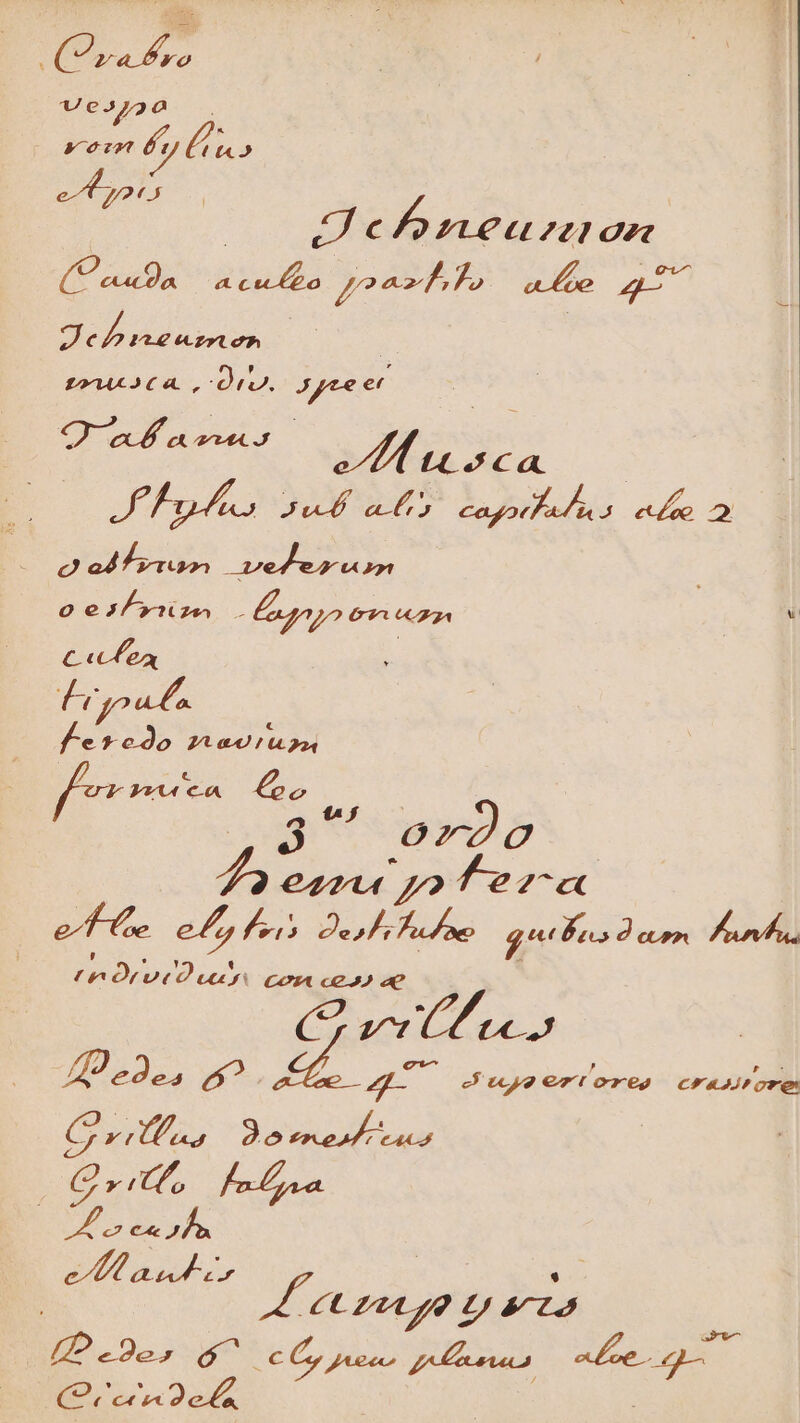 Crabro
vespa
bombylius
Apis
Ichneumon
Cauda aculeo partito aloe 4or
Ichneumon
musca, div. speci
Tabanus
Musca
Stylus sub alis capitatus aloe 2
oestrum veterum
oestrum lapponum
culex
tipula
teredo navium
formica leo
3us ordo
hemiptera
Aloe elytris destitutoe quibusdam tantu
individuis concessæ
Grillus
Pedes 6 aloe 4or superiores crassiores
Grillus domesticus
Grillo talpa
Locusta
Mantis
Lampyris
Pedes 6 clypeus planus aloe 4or
Cicindela